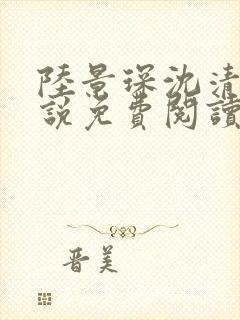 陸景琛沈清
說免費閱讀
晋美